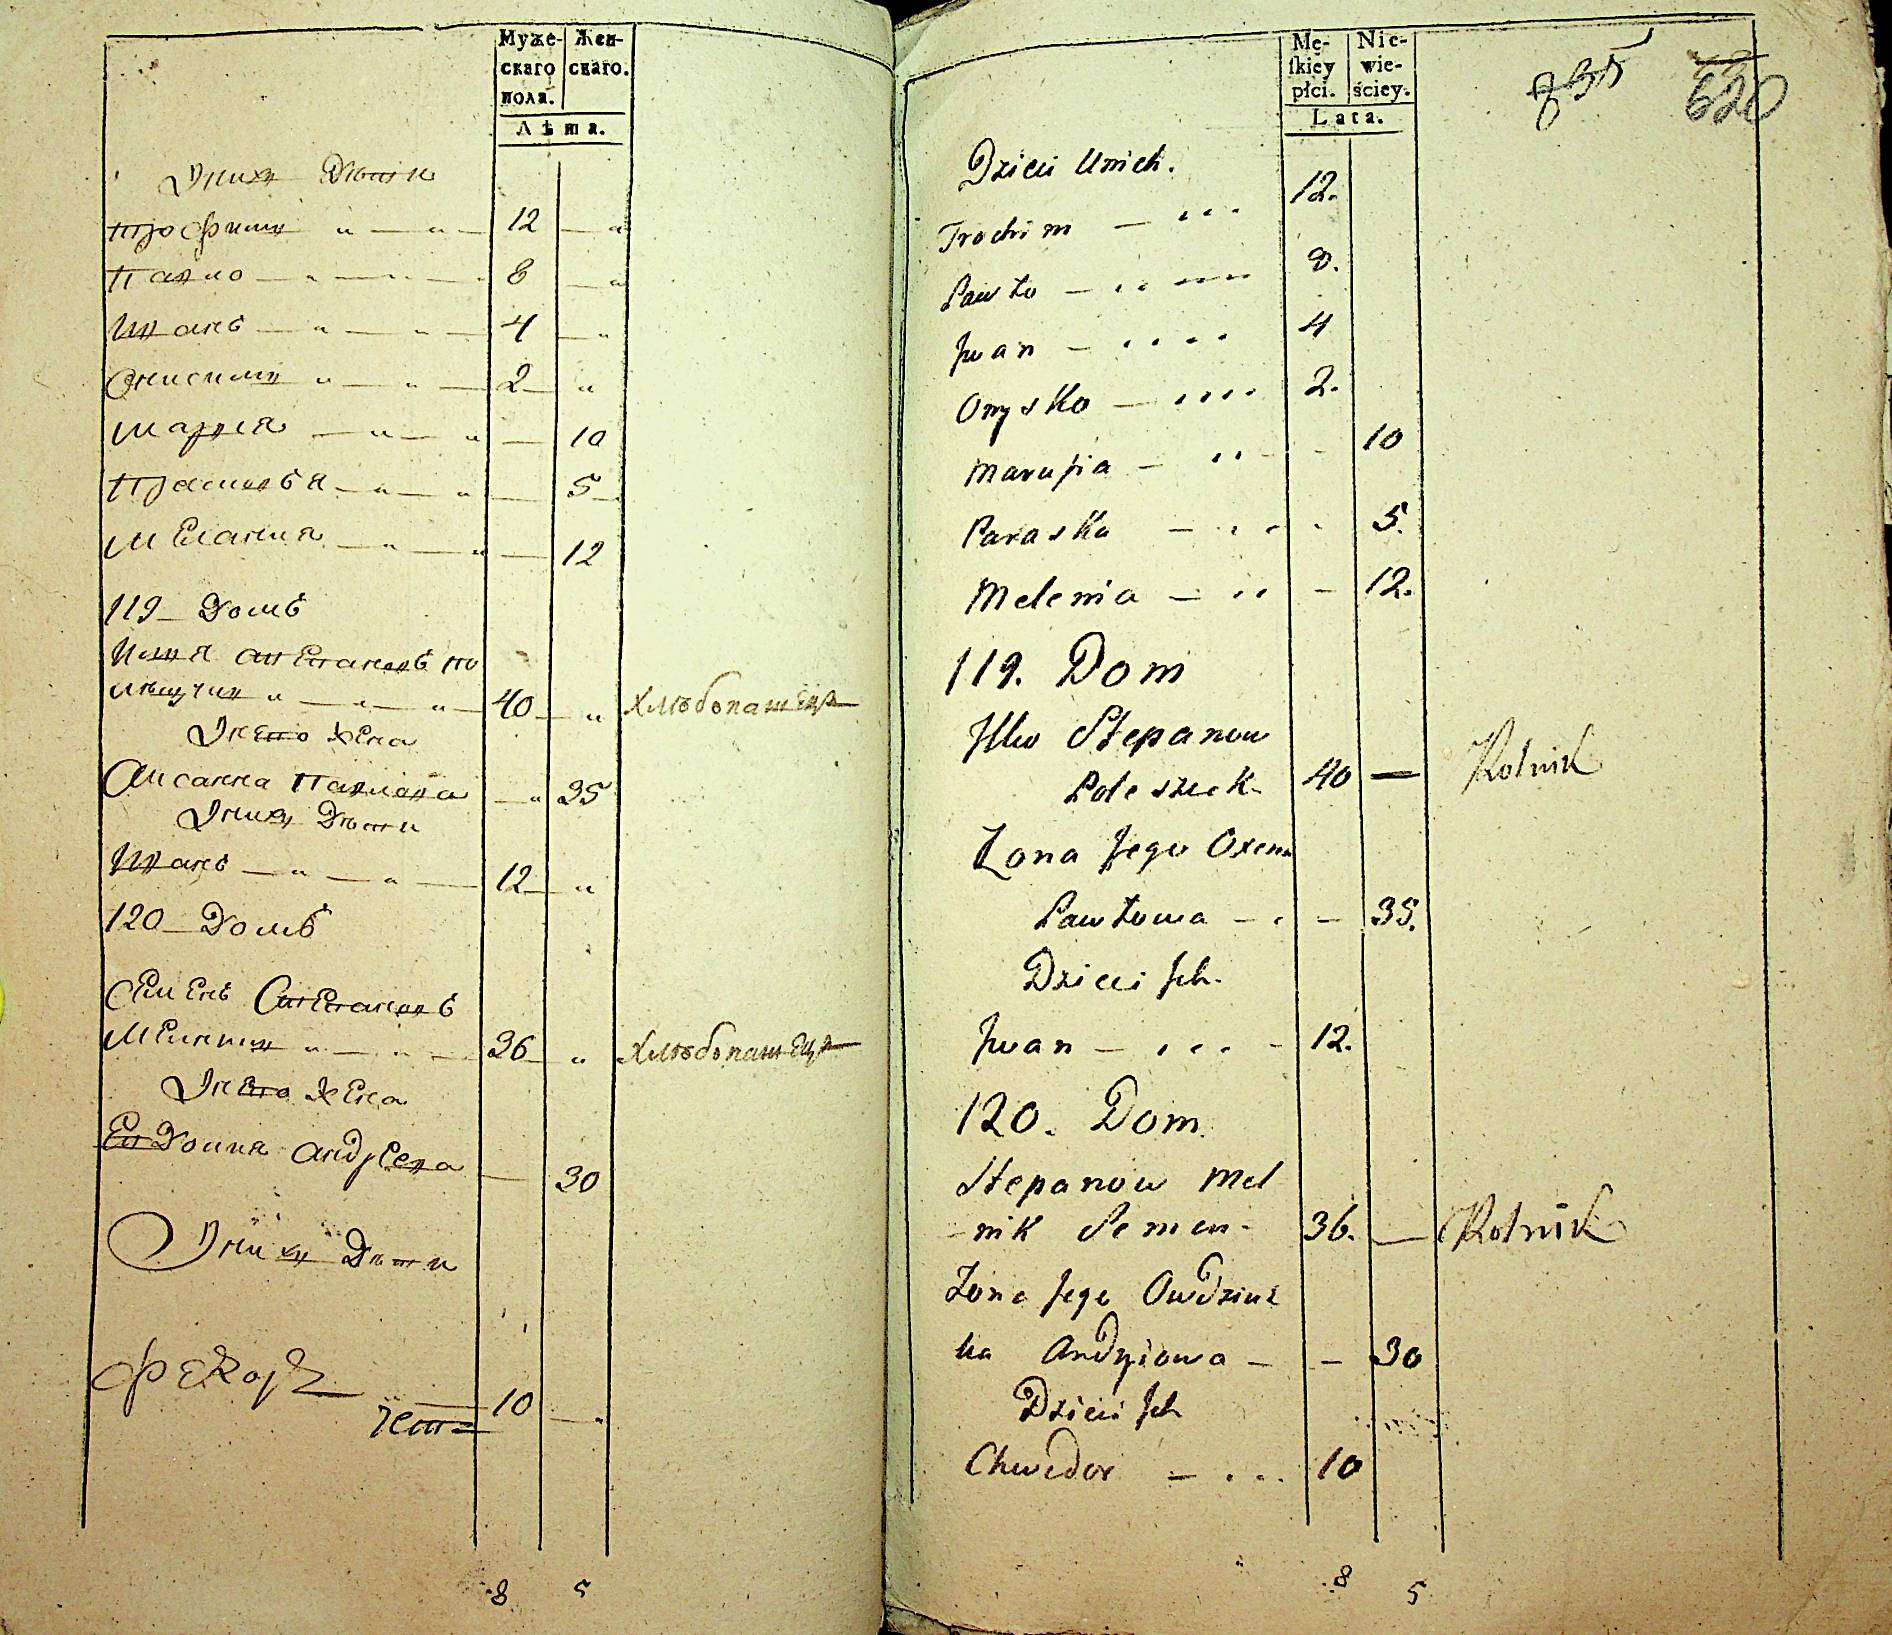 Муже-
скаго
пола.
Жен-
скаго.
Лѣта.
Унихъ Дѣти
Трофимъ " — " — 12 — "
Павло — " — " — 8 — "
Иванъ — " — " — 4 — "
Онисимъ " — " — 2 — "
Марія — " — " — 10
Прасковья — " — " — 5
Меланія — " — " — 12
119 — Домъ
Илья Степановъ По
лѣщукъ " — " — " — 40 — " хлѣбопашецъ
Унего жена
Оксанна Павлова — " 35
Унихъ Дѣти
Иванъ — " — " — 12 — "
120 — Домъ
Семенъ Степановъ
Мелникъ " — " — 36 — " хлѣбопашецъ
Унего жена
Евдокия Андреева — 30
Унихъ Дѣти
Федоръ — 10 — "
8 5
Mę-
ſkiey
płci.
Nie-
wie-
ściey.
Lata.
835 620
Dzieci Unich.
Trochim — 12.
Pawło — 8.
Jwan — 4
Onysko — 2.
Marusia — 10
Paraska — 5.
Melenia — 12.
119. Dom
Jlko Stepanow
Poleszuk - 40 — Rolnik
Żona Jego Oxena
Pawłowa — 35.
Dzieci Jch.
Jwan — 12.
120. Dom
Stepanow Mel
-nik Semen - 36. — Rolnik
Żona Jego Owdziuc
ha Andryiowa — 30
Dzieci Jch
Chwedor — 10
8 5